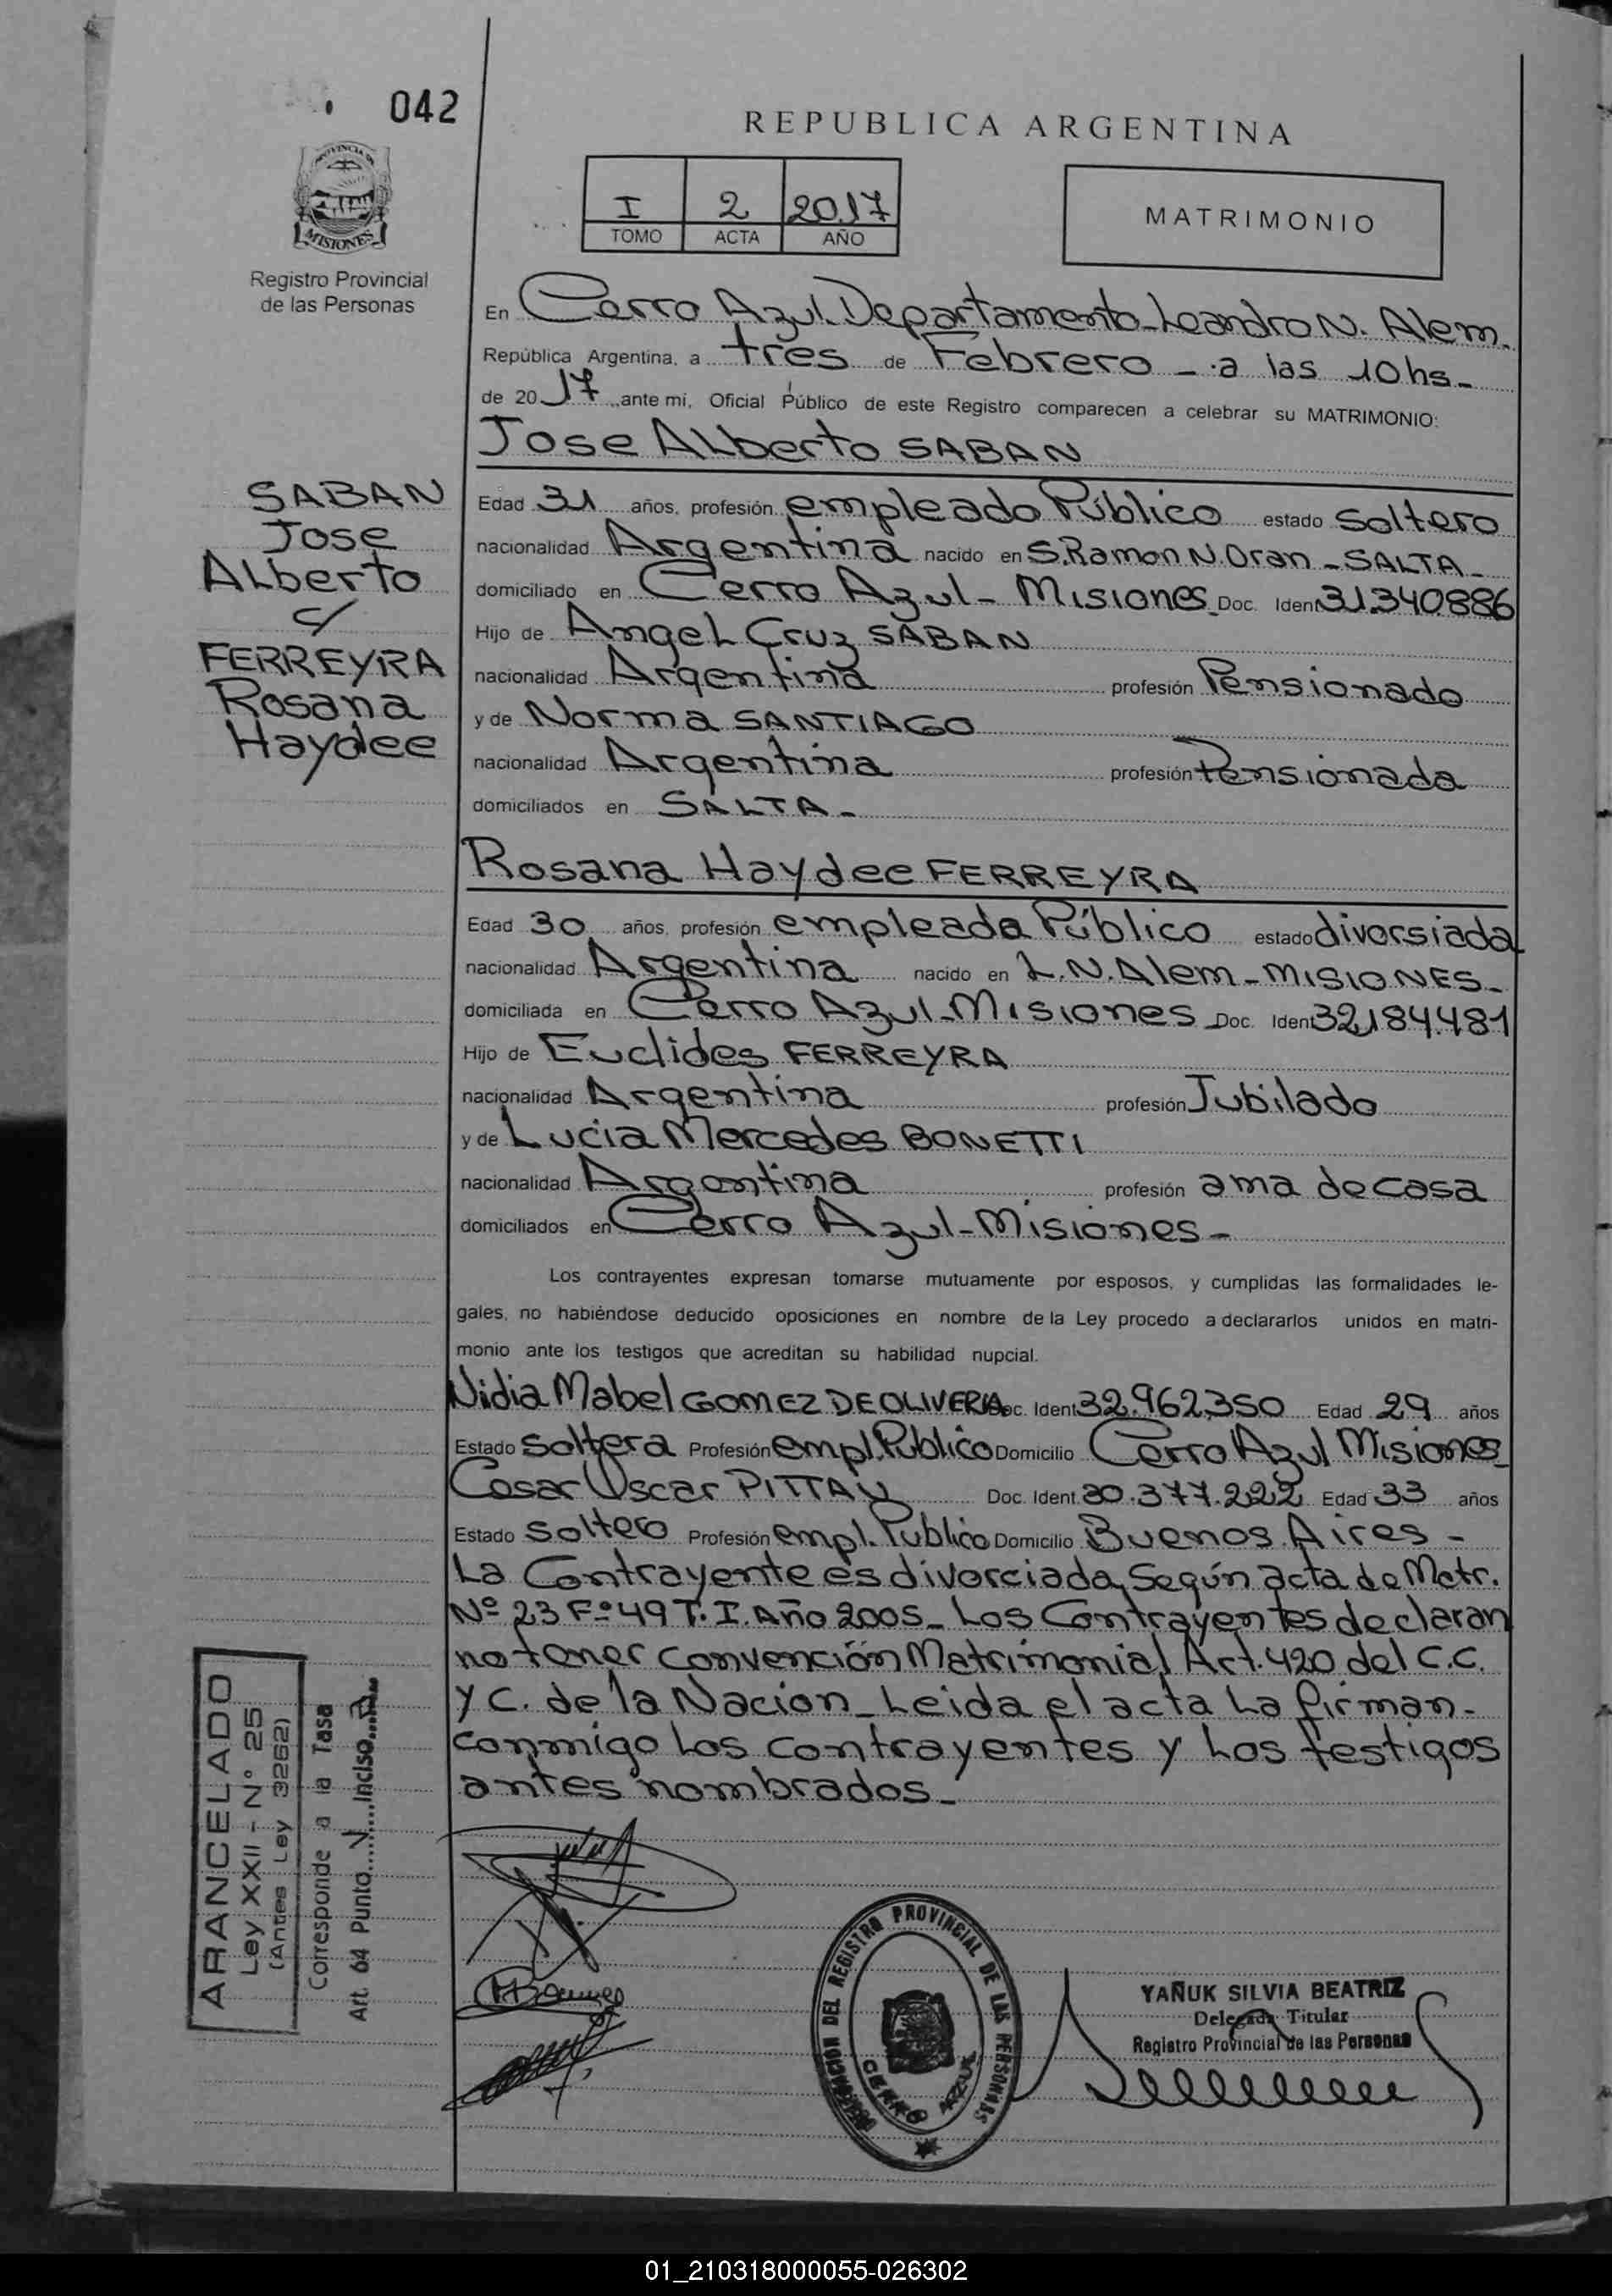 042
PROVINCIA DE
MISIONES
Registro Provincial
de las Personas
REPUBLICA ARGENTINA
I 2 2017
TOMO ACTA AÑO
MATRIMONIO
En Cerro Azul. Departamento Leandro N. Alem.
República Argentina, a tres de Febrero - a las 10 hs -
de 20 17 ante mí, Oficial Público de este Registro comparecen a celebrar su MATRIMONIO:
Jose ALberto SABAN
SABAN
Jose
ALberto
c/
FERREYRA
Rosana
Haydee
Edad 31 años, profesión empleado Público estado soltero
nacionalidad Argentina nacido en S.Ramon N.Oran - SALTA -
domiciliado en Cerro Azul - Misiones Doc. Ident 31.340886
Hijo de Angel Cruz SABAN
nacionalidad Argentina profesión Pensionado
y de Norma SANTIAGO
nacionalidad Argentina profesión Pensionada
domiciliados en SALTA -
Rosana Haydee FERREYRA
Edad 30 años, profesión empleada Público estado divorsiada
nacionalidad Argentina nacido en L.N.Alem - MISIONES -
domiciliada en Cerro Azul - Misiones Doc. Ident 32,184.481
Hijo de Euclides FERREYRA
nacionalidad Argentina profesión Jubilado
y de Lucia Mercedes BONETTI
nacionalidad Argentina profesión ama de casa
domiciliados en Cerro Azul - Misiones -
Los contrayentes expresan tomarse mutuamente por esposos, y cumplidas las formalidades le-
gales, no habiéndose deducido oposiciones en nombre de la Ley procedo a declararlos unidos en matri-
monio ante los testigos que acreditan su habilidad nupcial.
Nidia Mabel GOMEZ DE OLIVERIA Doc. Ident 32.962,350 Edad 29 años
Estado soltera Profesión empl. Publico Domicilio Cerro Azul Misiones
Cesar Oscar PITTAU Doc. Ident. 30.377.222 Edad 33 años
Estado soltero Profesión empl. Publico Domicilio Buenos Aires -
La Contrayente es divorciada, Según acta de Matr.
Nº 23 Fº 49 T. I. Año 2005 - Los Contrayentes declaran
no tener convención Matrimonial Art. 420 del C.C.
y C. de la Nacion - Leida el acta La firman -
conmigo Los contrayentes y Los testigos
antes nombrados -
ARANCELADO
Ley XXII - N° 25
(Antes Ley 3262)
Corresponde a la Tasa
Art. 64 Punto V Inciso
DELEGACION DEL REGISTRO PROVINCIAL DE LAS PERSONAS
CERRO AZUL
YAÑUK SILVIA BEATRIZ
Delegada Titular
Registro Provincial de las Personas
01_210318000055-026302